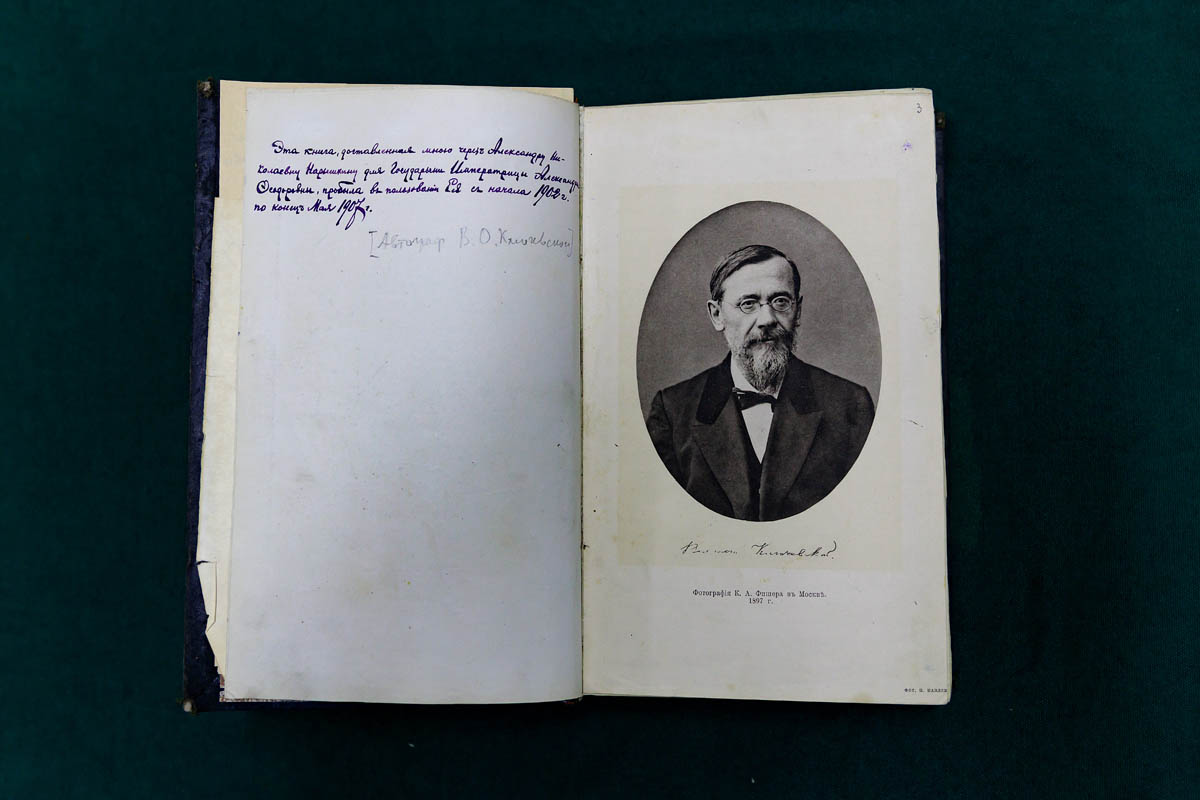 Эта книга, доставленная мною черезъ Александру Ни-
колаевну Нарышкину для Государыни Императрицы Александры
Ѳеодоровны, пробыла въ пользованіи Ея съ начала 1902 г.
по конецъ Мая 1907 г.
[Автограф В. О. Ключевской]
3
Ключевской.
Фотографія К. А. Фишера въ Москвѣ.
1897 г.
ФОТ. П. ПАВЛОВ